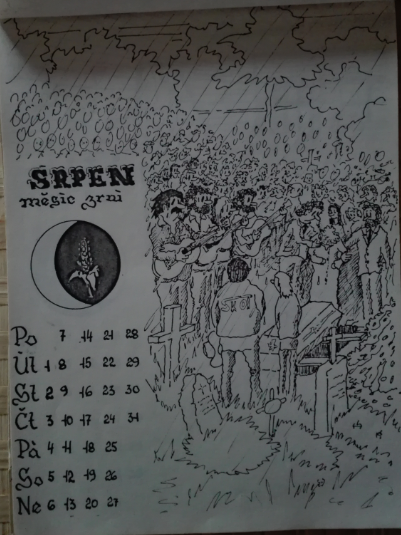 SRPEN
měsíc zrní
Po 7 14 21 28
Út 1 8 15 22 29
St 2 9 16 23 30
Čt 3 10 17 24 31
Pá 4 11 18 25
So 5 12 19 26
Ne 6 13 20 27